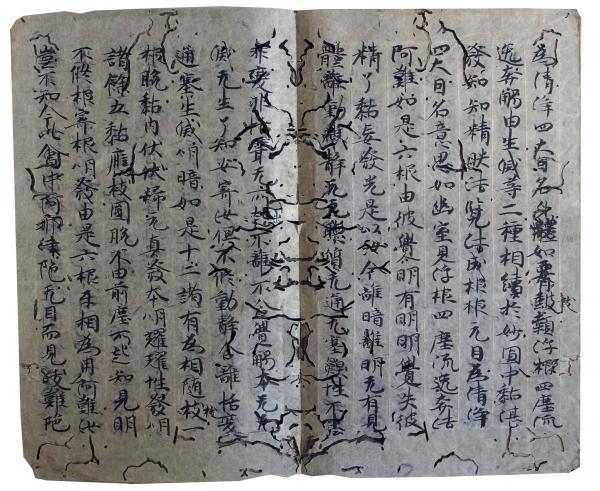 為清淨四大因名身體如腰鼓顙浮根四塵流
逸奔觸由生滅等二種相續於妙圓中黏湛
發知知精映法覽法成根根元目為清淨
四大因名意思如幽室見浮根四塵流逸奔法
阿難如是六根由彼覺明有明明覺失彼
精了黏妄發光是以汝今離暗離明无有見
體離動離靜元无聽質无通无塞嗅性不生
非變非恬嘗无所出不離不合覺觸本无无
滅无生了知安寄汝但不循動靜合離恬變
通塞生滅明暗如是十二諸有為相隨拔一
根脫黏內伏伏歸元真發本明耀耀性發明
諸餘五黏應拔圓脫不由前塵所起知見明
不循根寄根明發由是六根互相為用阿難汝
豈不知今此會中阿那律陀无目而見跋難陀